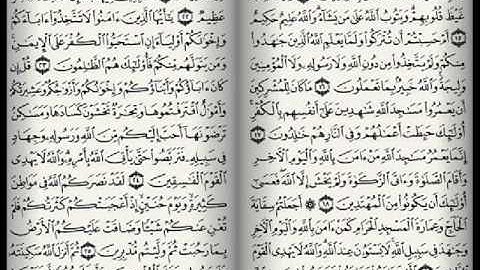 غَيْظَ قُلُوبِهِمْ وَيَتُوبُ ٱللَّهُ عَلَىٰ مَن يَشَآءُ وَٱللَّهُ عَلِيمٌ حَكِيمٌ
١٥ أَمْ حَسِبْتُمْ أَن تُتْرَكُوا۟ وَلَمَّا يَعْلَمِ ٱللَّهُ ٱلَّذِينَ جَـٰهَدُوا۟
مِنكُمْ وَلَمْ يَتَّخِذُوا۟ مِن دُونِ ٱللَّهِ وَلَا رَسُولِهِۦ وَلَا ٱلْمُؤْمِنِينَ
وَلِيجَةً وَٱللَّهُ خَبِيرٌۢ بِمَا تَعْمَلُونَ ١٦ مَا كَانَ لِلْمُشْرِكِينَ
أَن يَعْمُرُوا۟ مَسَـٰجِدَ ٱللَّهِ شَـٰهِدِينَ عَلَىٰٓ أَنفُسِهِم بِٱلْكُفْرِ
أُو۟لَـٰٓئِكَ حَبِطَتْ أَعْمَـٰلُهُمْ وَفِى ٱلنَّارِ هُمْ خَـٰلِدُونَ ١٧
إِنَّمَا يَعْمُرُ مَسَـٰجِدَ ٱللَّهِ مَنْ ءَامَنَ بِٱللَّهِ وَٱلْيَوْمِ ٱلْـَٔاخِرِ
وَأَقَامَ ٱلصَّلَوٰةَ وَءَاتَى ٱلزَّكَوٰةَ وَلَمْ يَخْشَ إِلَّا ٱللَّهَ فَعَسَىٰٓ
أُو۟لَـٰٓئِكَ أَن يَكُونُوا۟ مِنَ ٱلْمُهْتَدِينَ ١٨ أَجَعَلْتُمْ سِقَايَةَ
ٱلْحَآجِّ وَعِمَارَةَ ٱلْمَسْجِدِ ٱلْحَرَامِ كَمَنْ ءَامَنَ بِٱللَّهِ وَٱلْيَوْمِ ٱلْـَٔاخِرِ
وَجَـٰهَدَ فِى سَبِيلِ ٱللَّهِ لَا يَسْتَوُۥنَ عِندَ ٱللَّهِ وَٱللَّهُ لَا يَهْدِى ٱلْقَوْمَ
عَظِيمٌ ٢٢ يَـٰٓأَيُّهَا ٱلَّذِينَ ءَامَنُوا۟ لَا تَتَّخِذُوٓا۟ ءَابَآءَكُمْ
وَإِخْوَٰنَكُمْ أَوْلِيَآءَ إِنِ ٱسْتَحَبُّوا۟ ٱلْكُفْرَ عَلَى ٱلْإِيمَـٰنِ
وَمَن يَتَوَلَّهُم مِّنكُمْ فَأُو۟لَـٰٓئِكَ هُمُ ٱلظَّـٰلِمُونَ ٢٣ قُلْ إِن
كَانَ ءَابَآؤُكُمْ وَأَبْنَآؤُكُمْ وَإِخْوَٰنُكُمْ وَأَزْوَٰجُكُمْ وَعَشِيرَتُكُمْ
وَأَمْوَٰلٌ ٱقْتَرَفْتُمُوهَا وَتِجَـٰرَةٌ تَخْشَوْنَ كَسَادَهَا وَمَسَـٰكِنُ
تَرْضَوْنَهَآ أَحَبَّ إِلَيْكُم مِّنَ ٱللَّهِ وَرَسُولِهِۦ وَجِهَادٍ
فِى سَبِيلِهِۦ فَتَرَبَّصُوا۟ حَتَّىٰ يَأْتِىَ ٱللَّهُ بِأَمْرِهِۦ وَٱللَّهُ لَا يَهْدِى
ٱلْقَوْمَ ٱلْفَـٰسِقِينَ ٢٤ لَقَدْ نَصَرَكُمُ ٱللَّهُ فِى مَوَاطِنَ
كَثِيرَةٍ وَيَوْمَ حُنَيْنٍ إِذْ أَعْجَبَتْكُمْ كَثْرَتُكُمْ فَلَمْ
تُغْنِ عَنكُمْ شَيْـًٔا وَضَاقَتْ عَلَيْكُمُ ٱلْأَرْضُ
بِمَا رَحُبَتْ ثُمَّ وَلَّيْتُم مُّدْبِرِينَ ٢٥ ثُمَّ أَنزَلَ ٱللَّهُ سَكِينَتَهُۥ